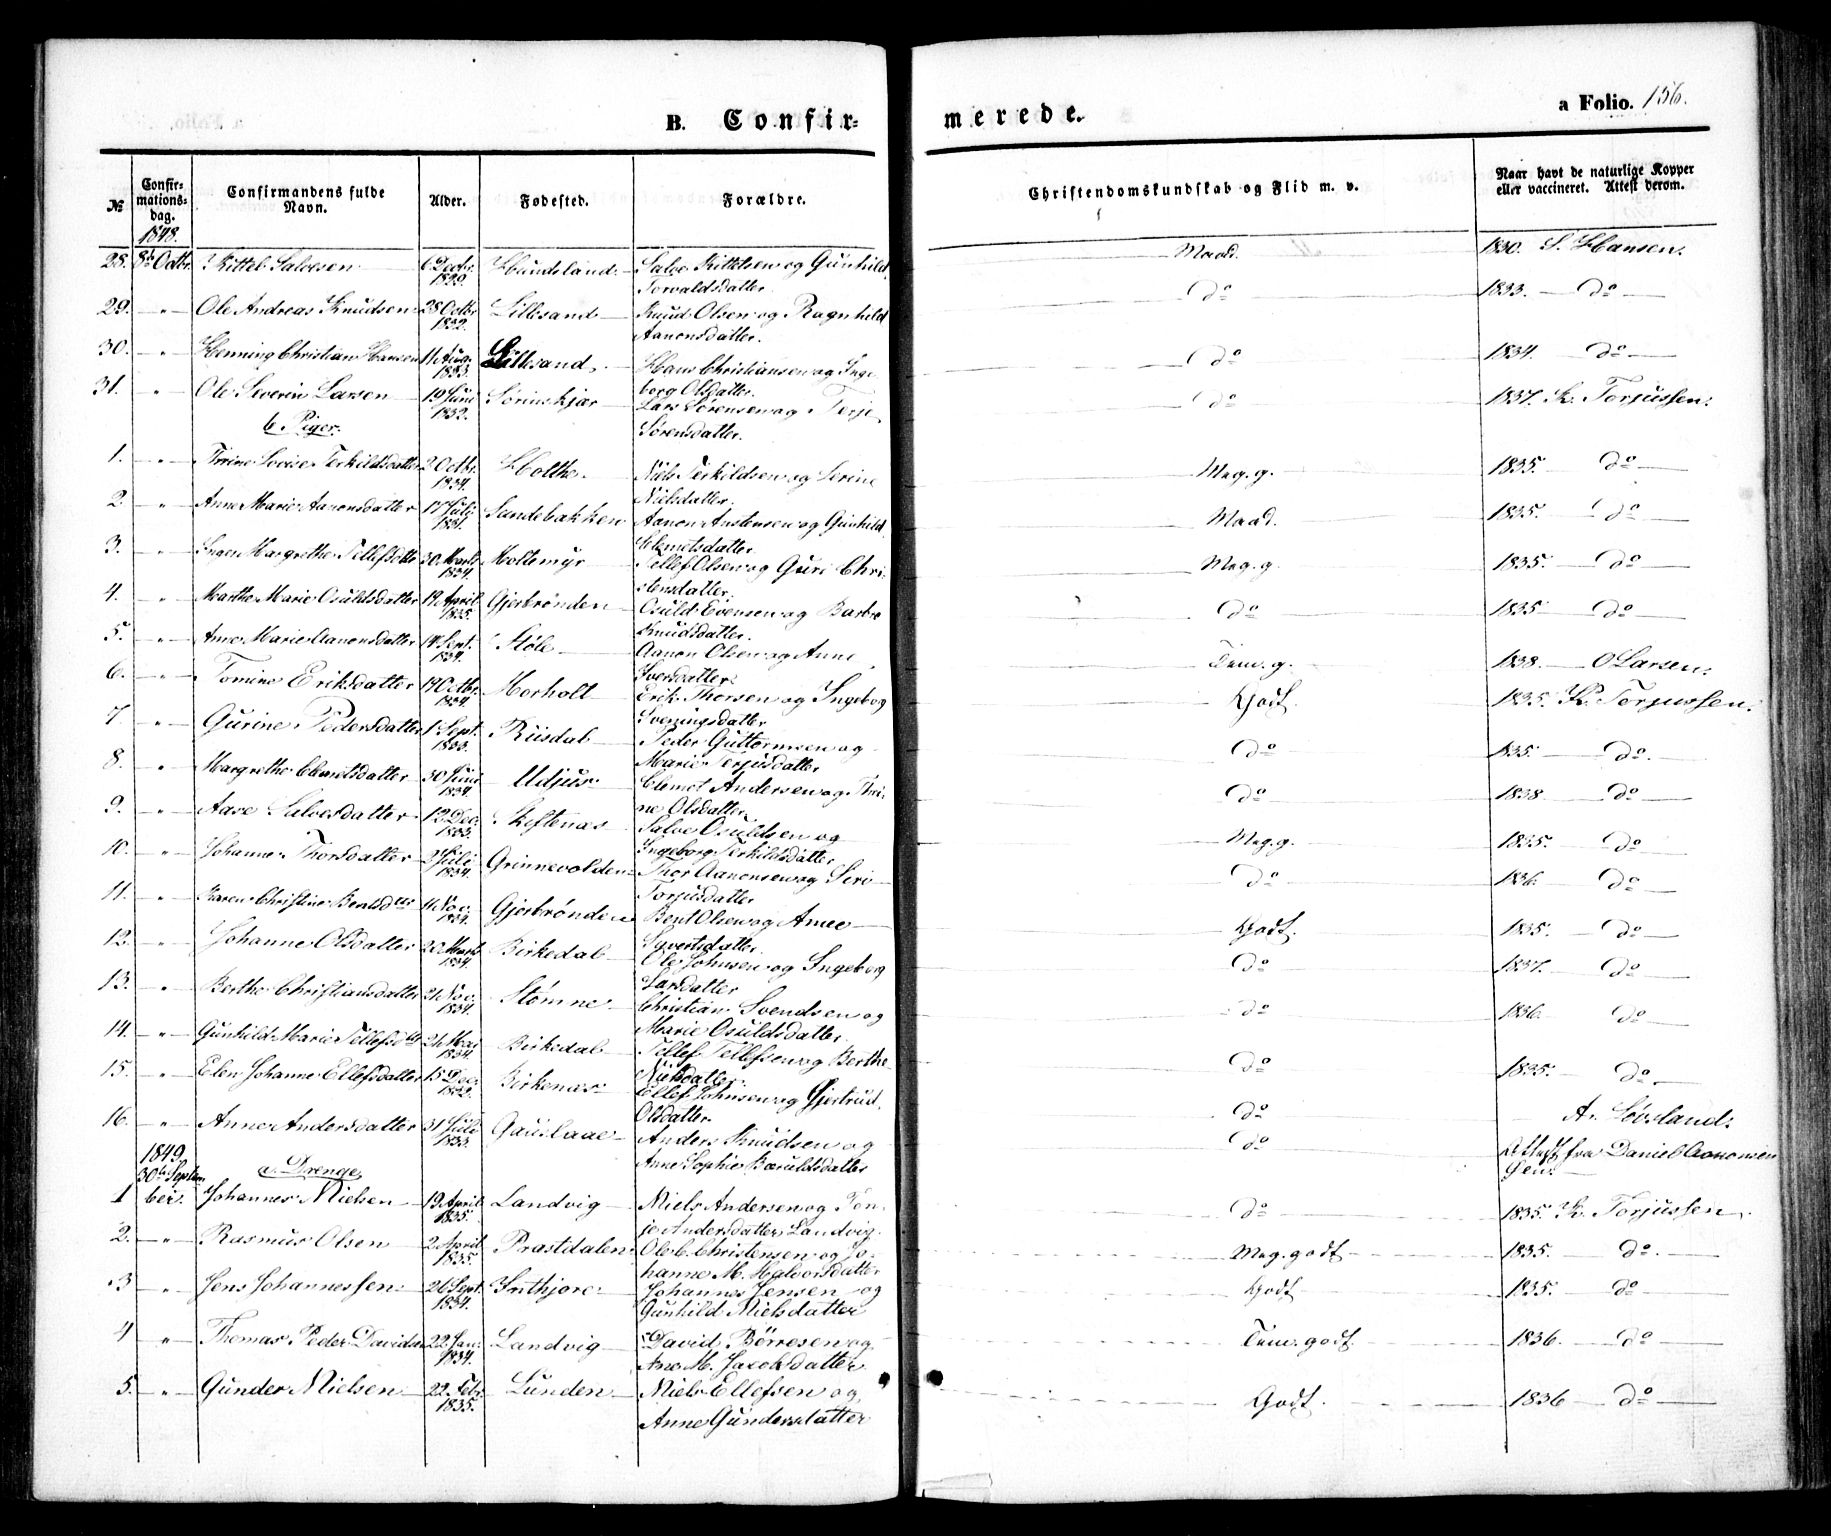 B. Confir-
merede.
a Folio. 156.
№
Confir-
mations-
dag.
1848.
Confirmandens fulde
Navn.
Alder.
Fødested.
Forældre.
Christendomskundskab og Flid m. v.
Naar havt de naturlige Kopper
eller vaccineret. Attest derom.
28. 8de Octbr. Kittel Salvesen 6 Decbr. Haudsland Salve Kittelsen og Gunhild Maad. 1830. S. Hansen.
Torvaldsdatter
29. " Ole Andreas Knudsen 28 Octbr. Lillesand Knud Olsen og Ragnhild do 1833. do
1832. Aanonsdatter.
30. " Henning Christian Hansen 11 Aug. Lillesand Hans Christiansen og Inge do 1834. do
1833. borg Olsdatter.
31. " Ole Severin Larsen 19 Juni Lars Sørensen og Terje do 1837. K. Torjussen.
1832. Sørensdatter.
b. Piger.
1. " Lovise Terkildsdatter 2 Octbr. Holthe Niels Terkildsen og Serine Meg. g. 1835. do
1834. Nielsdatter.
2. " Anne Marie Aanonsdatter 17 Juli Sandebakken Aanon Austensen og Gunhild Maad. 1835. do
Clemetsdatter
3. " Inger Margrethe Tellefsdatter 30 Marts Moltemyr Tellef Olsen og Guri Chri- Meg. g. 1835. do
1834. stensdatter
4. " Marthe Marie Osuldsdatter 19 April Gjerbrønden Osuld Evensen og Barbro do 1835 do
1835. Knudsdatter.
5. " Anne Marie Aanonsdatter 14 Sept. Støle Aanon Olsen og Anne Tem. g. 1838. O Larsen.
1834. Iversdatter
6. " Tomine Eriksdatter 19 Octbr. Morholt Erik Thorsen og Ingeborg Godt. 1835. K. Torjussen.
1834. Sveningsdatter
7 " Gurine Pedersdatter 1 Sept. Riisdal Peder Guttormsen og do 1835. do
1833. Marie Terjusdatter
8. " Margrethe Clemetsdatter 30 Juni Udjus Clemet Andersen og Thri- do 1838 do
1834. ne Olsdatter
9. " Aase Salvesdatter 12 Dec. Skiftenæs Salve Osuldsen og Meg. g. 1835. do
1833. Ingeborg Terkildsdatter
10. " Johanne Thorsdatter 2 Juli Grinnevolden Thor Aanonsen og Siri do 1836. do
1834. Torjusdatter
11. " Karen Christine Bentsdtr 11 Nov. Gjerbrønden Bent Olsen og Anne Godt. 1835. do
1834. Syvertsdatter
12. " Johanne Olsdatter 20 Marts Birkedal Ole Johnsen og Ingeborg do 1837. do
1834. Larsdatter
13. " Berthe Christiansdatter 21 Nov. Stømne Christian Svendsen og do 1836. do
1834. Marie Osuldsdatter
14. " Gunhild Marie Tellefsdtr 24 Mai Birkedal Tellef Tellefsen og Berthe do 1835. do
1834. Nielsdatter
15. " Elen Johanne Ellefsdatter 15 Dec. Birkenæs Ellef Johnsen og Gjertrud do A. Løvsland.
Olsdatter
16. " Anne Andersdatter 31 Juli Gauslaae Anders Knudsen og do Attest fra Daniel Aanonsen
1833. Anne Sophie
1849.
30te Septem a. Drenge
1 ber. Johannes Nielsen 19 April Landvig Niels Andersen og Ton- do 1835. K. Torjussen.
1835. je Andersdatter Landvig
2. " Rasmus Olsen 2 April Præstdalen Ole C. Christensen og Jo- Meg. godt 1835. do
1835. hanne M. Halvorsdatter
3 " Jens Johannessen 26 Sept. Inthjore Johannes Jensen og Godt 1835. do
1834. Gunhild Nielsdatter
4 " Thomas Peder Davidsen 22 Jan. Landvig David Børresen og Tem. godt. 1836. do
1834. Ane M. Jacobsdatter
5. " Gunder Nielsen 22 Febr. Lunden Niels Ellefsen og Godt. 1836 do
1835. Anne Gundersdatter